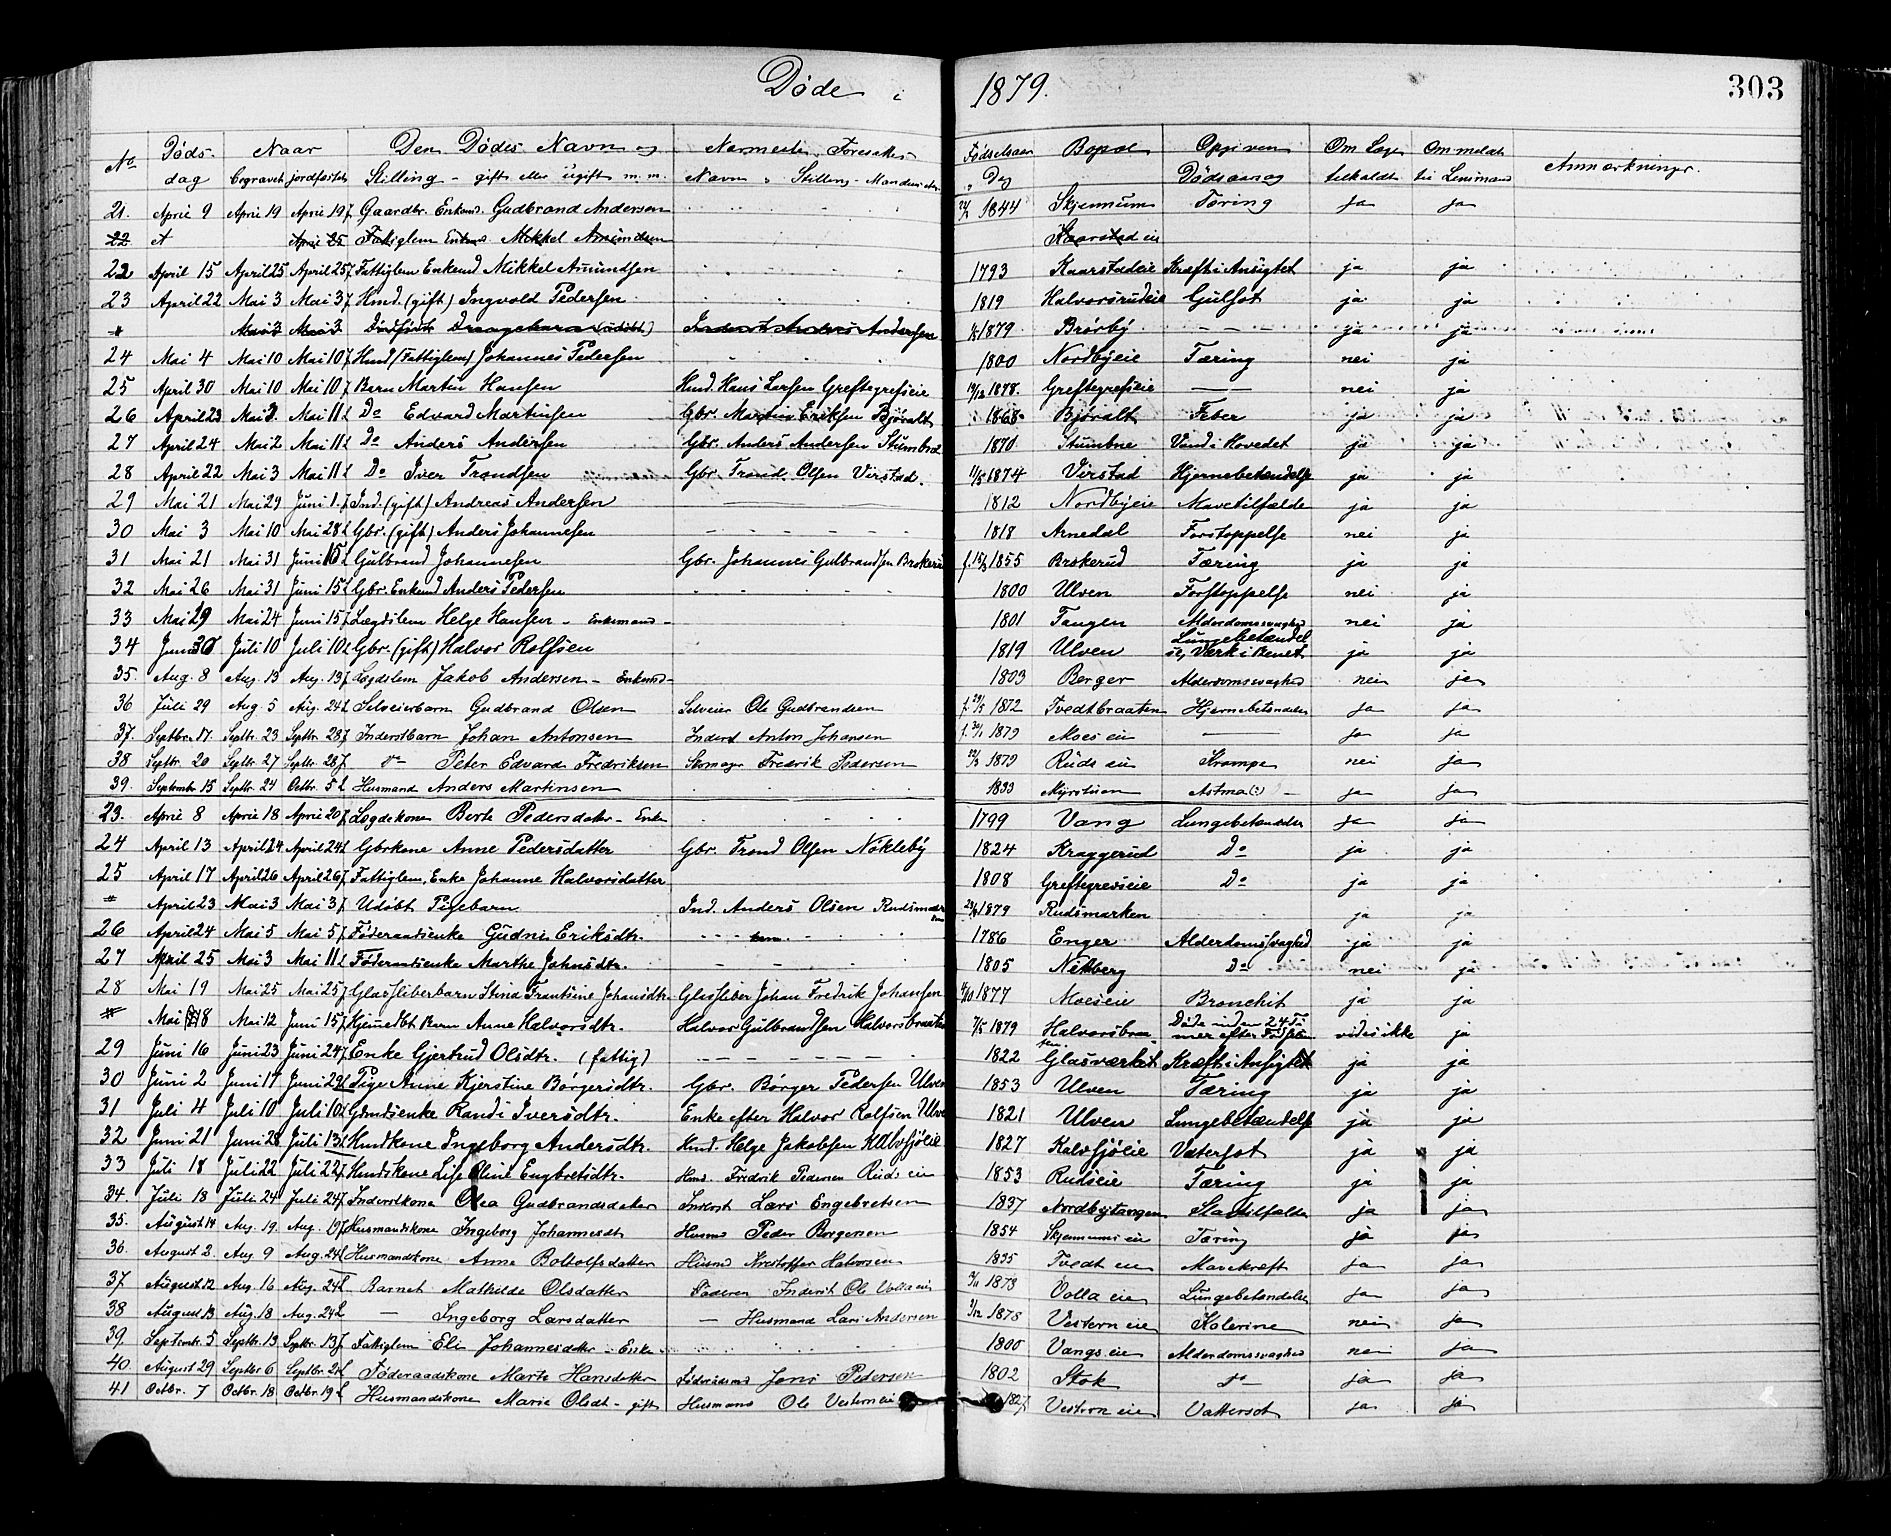 Døde i 1879. 303
No Døds- Naar Den Dødes Navn og Nærmeste Foresattes Fødselsaar Bopæl Opgiven Om Læge Om meldt Anmærkninger.
dag begravet jordfæstet Stilling - gift eller ugift m. m. Navn, Stilling - Dag Dødsaarsag tilkaldt til Lensmand
21. April 9 April 19 April 19 f. Gaardbr. Enkemd. Gudbrand Andersen 1844 Skjennum Tæring ja ja
22 A April 25 Fattiglem Enkemd Mikkel Amundsen Kaarstad eie
22 April 15 April 25 April 25 f. Fattiglem Enkemd Mikkel Amundsen 1793 Kaarstadeie Kræft i Ansigtet ja ja
23 April 22 Mai 3 Mai 3 f. Hmd. (gift) Ingvold Pedersen 1819 Halvorsrudeie Gulsot ja ja
Mai 3 Mai 3 Dødfødt Drengebarn (udøbt) Andersen 1879 Brørby ja ja
24 Mai 4 Mai 10 Mai 10 f. Hmd. (Fattiglem) Johannes Pedersen 1800 Nordbyeie Tæring nei ja
25 April 30 Mai 10 Mai 10 f. Barn Martin Hansen Hmd. Hans Larsen Greftegrefseie 19/12 1878. Greftegrefseie — nei ja
26 April 23 Mai 2. Mai 11 L Do Edvard Martinsen Gbr. Martin Eriksen Bjøralt 1868 Bjøralt Feber ja ja
27 April 24 Mai 2 Mai 11 L Do Anders Andersen Gbr. Anders Andersen Stumbne 1870 Stumbne Vand i Hovedet ja ja
28 April 22 Mai 3 Mai 11 L Do Iver Trondsen Gbr. Trond Olsen Virstad. 11/5 1874 Virstad Hjernebetændelse ja ja
29 Mai 21 Mai 29 Juni 1. f. Ind. (gift) Andreas Andersen 1812 Nordbyeie Mavetilfælde ja ja
30 Mai 3 Mai 10 Mai 28 L Gbr. (gift) Anders Johannesen 1818 Arnedal Forstoppelse nei ja
31 Mai 21 Mai 31 Juni 15 L Gulbrand Johannesen Gbr. Johannes Gulbrandsen Brokerud f. 15/3 1855 Brokerud Tæring ja ja
32 Mai 26 Mai 31 Juni 15 L Gbr. Enkemd Anders Pedersen 1800 Ulven Forstoppelse nei ja
33 Mai 29 Mai 24 Juni 15 f. Lægdslem Helge Hansen - Enkemand - 1801 Tangen Alderdomssvaghed nei ja
34 Juni 30 Juli 10 Juli 10 L Gbr. (gift) Halvor Rolfsen 1819 Ulven Lungebetændelse, Værk i Benet ja ja
35. Aug. 8 Aug. 13 Aug. 13 f. Lægdslem Jakob Andersen - Enkemd - 1803 Berger Alderdomssvaghed nei ja
36 Juli 29 Aug. 5 Aug. 24 L Selveierbarn Gudbrand Olsen Selveier Ole Gudbrandsen f. 29/5 1872 Tvedtbraaten Hjernebetændelse ja ja
37. Septbr. 17. Septbr. 23 Septbr. 28 f. Inderstbarn Johan Antonsen Inderst Anton Johansen f. 30/1 1879 Moes eie — ja ja
38 Septbr. 20 Septbr. 27 Septbr. 28 f. do Peter Edvard Fredriksen Skomager Fredrik Pedersen 22/3 1879 Ruds eie Krampe nei ja
39. September 15 Septbr. 24 Octbr. 5 L Husmand Anders Martinsen 1833 Myrstuen Astma (?) - ja ja
23. April 8 April 18 April 20 f. Lægdskone Berte Pedersdatter - Enke 1799 Vang Lungebetændelse ja ja
24 April 13 April 24 April 24 L Gbrkone Anne Pedersdatter Gbr. Trond Olsen Nökleby 1824 Kraggerud Do ja ja
25 April 17 April 26 April 26 f. Fattiglem, Enke Johanne Halvorsdatter 1808 Greftegrevseie Do ja ja
April 23 Mai 3 Mai 3 f. Udøbt Pigebarn Ind. Anders Olsen Rudsmarken 23/4 1879 Rudsmarken ja ja
26 April 24 Mai 5 Mai 5 f. Föderaadsenke Gudni Eriksdtr. 1786 Enger Alderdomssvaghed ja ja
27 April 25 Mai 3 Mai 11 L Föderaadsenke Marthe Johnsdtr. 1805 Nikberg Do nei ja
28 Mai 19 Mai 25 Mai 25 f. Glassliberbarn Stina Frantsine Johansdtr. Glassliber Johan Fredrik Johansen 4/10 1877 Moeseie Bronchit ja ja
Mai 8 Mai 12 Juni 15 f. Hjemedbt Barn Anne Halvorsdtr. Halvor Gulbrandsen Halvorsbraaten 7/5 1879 Halvorsbraaten. Døde inden 24 Timer efter Fødselen vides ikke ja
29 Juni 16 Juni 23 Juni 24 f. Enke Gjertrud Olsdtr. (fattig) 1822 Glasværket Kræft i Ansigtet ja ja
30 Juni 2 Juni 17 Juni 29 L Pige Anne Kjerstine Börgersdtr. Gbr. Börger Pedersen Ulven 1853 Ulven Tæring ja ja
31 Juli 4 Juli 10 Juli 10 L Gbmdsenke Randi Iversdtr. Enke efter Halvor Rolfsen Ulven 1821 Ulven Lungebetændelse ja ja
32 Juni 21 Juni 28 Juli 13 L Hmdkone Ingeborg Andersdtr. Hmd. Helge Jakobsen Kalvsjöeie 1827 Kalvsjöeie Vatersot ja ja
33 Juli 18 Juli 22 Juli 22 f. Hmdskone Lise Oline Engbretsdtr. Hmd. Fredrik Pedersen Ruds eie 1853 Rudseie Tæring ja ja
34. Juli 18 Juli 24 Juli 24 f. Inderstkone Olea Gudbrandsdatter Inderst Lars Engebretsen 1837 Nordbytangen Slagtilfælde ja ja
35. August 14 Aug. 19. Aug. 19 f. Husmandskone Ingeborg Johannesdt Husmd Peder Borgersen 1854 Skjennums eie Tæring ja ja
36. August 2. Aug 9 Aug. 24 L Husmandskone Anne Bottolfsdatter Husmd Kristoffer Halvorsen 1835 Tvedt eie Mavekræft ja ja
37. August 12 Aug. 16 Aug. 24 L Barnet Mathilde Olsdatter Faderen Inderst Ole Volla eie 1873 Volla eie Lungebetændelse ja ja
38 August 13 Aug. 18 Aug. 24 L — Ingeborg Larsdatter — Husmand Lars Andersen 1878 Vestern eie Kolerine nei ja
39. Septembr. 5 Septbr. 13 Septbr. 13 f. Fattiglem Eli Johannesdatter - Enke 1800 Vangs eie Alderdomssvaghed nei ja
40. August 29 Septbr 6 Septbr. 21 L Föderaadskone Marte Hansdatter Föderaadsmd Jens Pedersen 1802 Stok do ja ja
41 Octbr. 7 Octbr. 18 Octbr. 19 L Husmandskone Marie Olsdt - gift Husmand Ole Vestern eie 1827 Vestern eie Vattersot ja ja